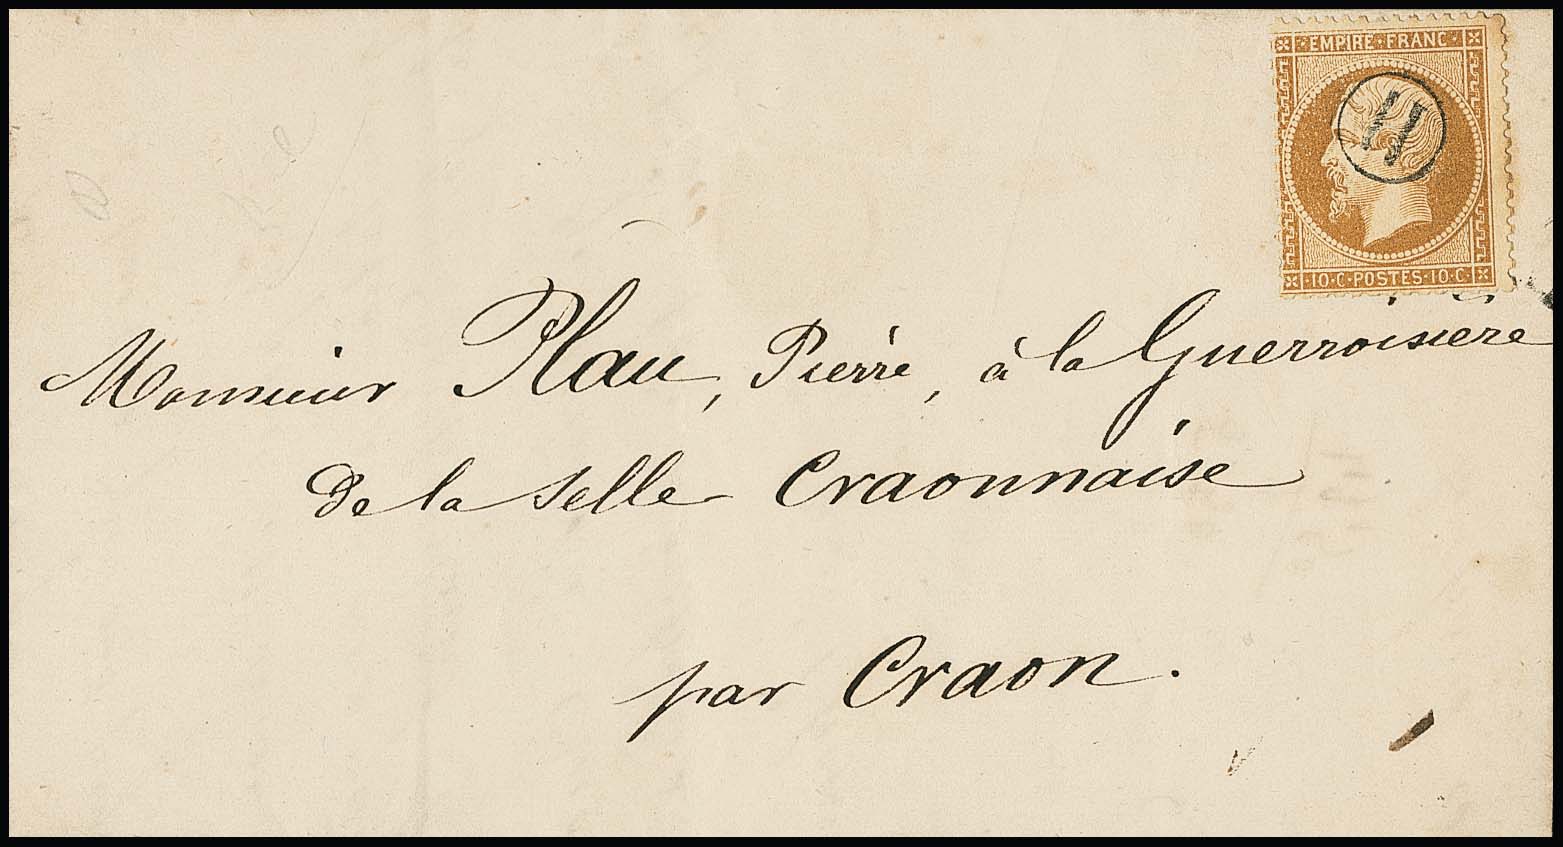 EMPIRE·FRANC
11
10·C·POSTES·10·C
Monsieur Plau, Pierre, à la Guerroisiere
De la Selle Craonnaise
par Craon.